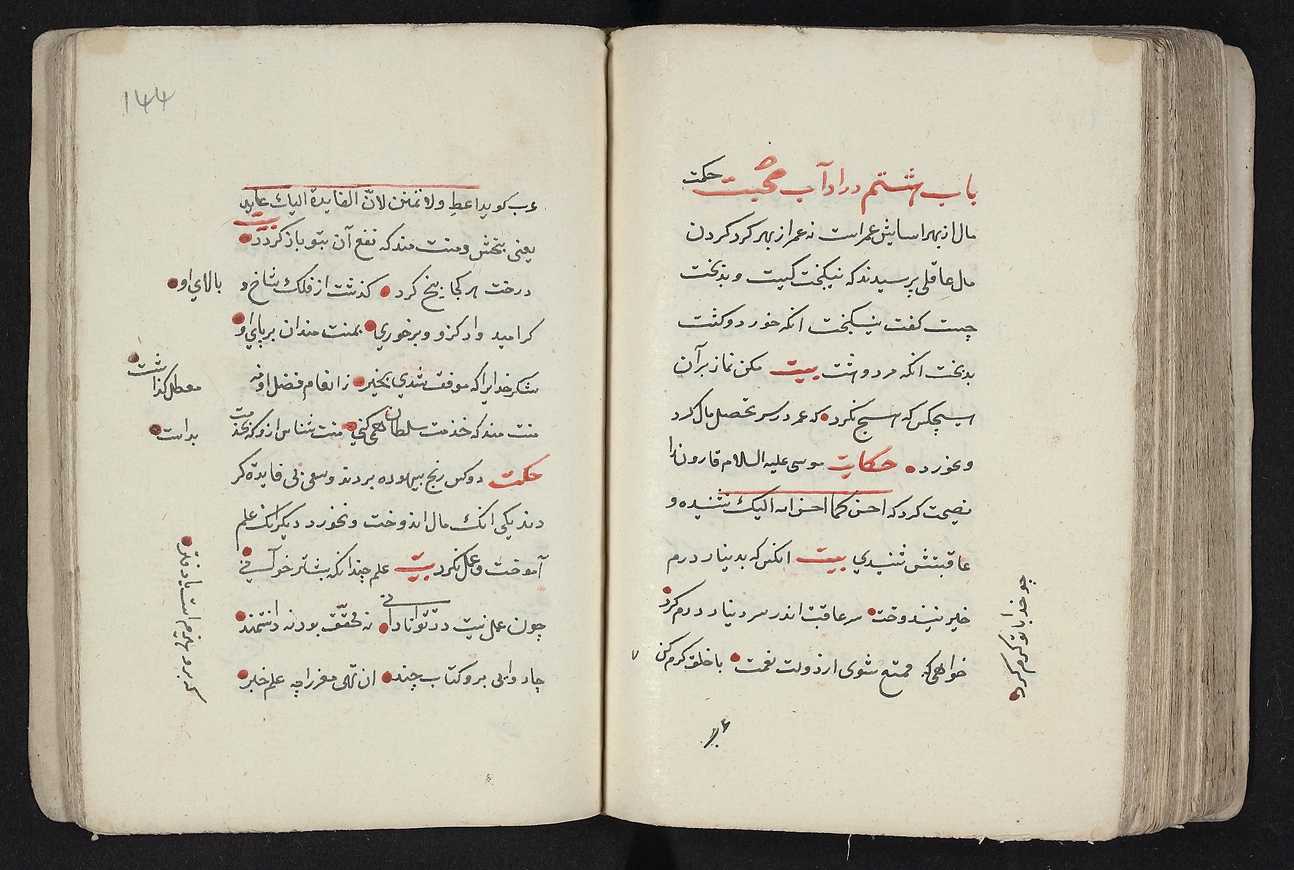 باب هشتم در اداب صحبت حکمت
مال از بهر اسایش عمر است نه عمر از بهر کرد کردن
مال عاقلی پرسیدند که نیکبخت کیست و بدبخت
چیست کفت نیکبخت انکه خورد و کشت
بدبخت انکه مرد و هشت بیت مکن نماز بر آن
هیچکس که هیچ نکرد که عمر در سر تحصیل مال کرد
و نخورد حکایت موسی علیه السلام قارون را
نصیحت کرد که احسن کما احسن الله الیک نشنیده و
عاقبتش شنیدی بیت انکس که بدینار و درم
خیر نیندوخت سر عاقبت اندر سر دینار و درم کرد
خواهی که ممتع شوی از دولت نعمت با خلق کرم کن
چو خدا با تو کرم کرد
عرب
۱۴۴
عرب کوید اعط ولا تمنن لان الفایدة الیك عایده
یعنی ببخش و منت منه که نفع آن بتو باز کردد بیت
درخت هر کجا بیخ کرد کذشت از فلك شاخ و بالای او
کر امید واری کزو بر خوری بمنت منه ان بر پای او
شکر خدایرا که موفق شدی بخیر ز انعام فضل او نه معطل کذاشت
منت منه که خدمت سلطان همی کنی منت شناس ازو که بخدمت بداشت
حکمت دو کس رنج بیهوده بردند و سعی بی فایده کر
دند یکی انك مال اندوخت و نخورد دیکر انك علم
آموخت و عمل نکرد بیت علم چندانکه بیشتر خوانی
چون عمل نیست در تو نادانی نه محقق بود نه دانشمند
چارپای برو کتاب چند ان تهی مغز را چه علم خبر
که برو هیزم است یا دفتر